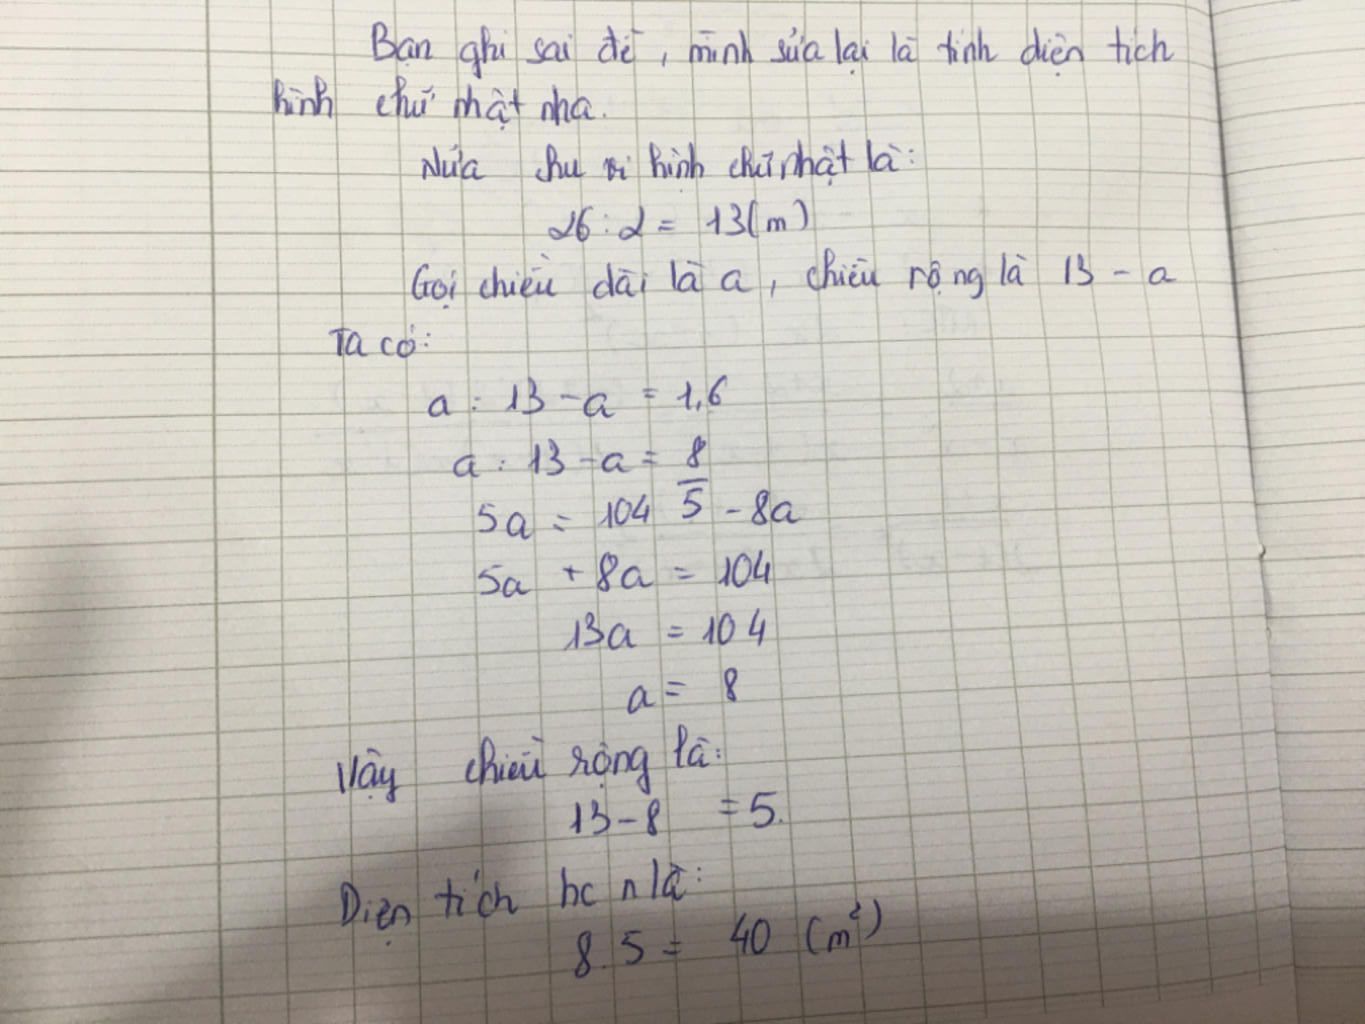 Bạn ghi sai đề, mình sửa lại là tính diện tích
hình chữ nhật nha.
Nửa chu vi hình chữ nhật là:
26 : 2 = 13(m)
Gọi chiều dài là a, chiều rộng là 13 - a
Ta có:
a : 13 - a = 1,6
a : 13 - a = 8/5
5a = 104 - 8a
5a + 8a = 104
13a = 104
a = 8
Vậy chiều rộng là:
13 - 8 = 5.
Diện tích hcn là:
8.5 = 40 (m²)